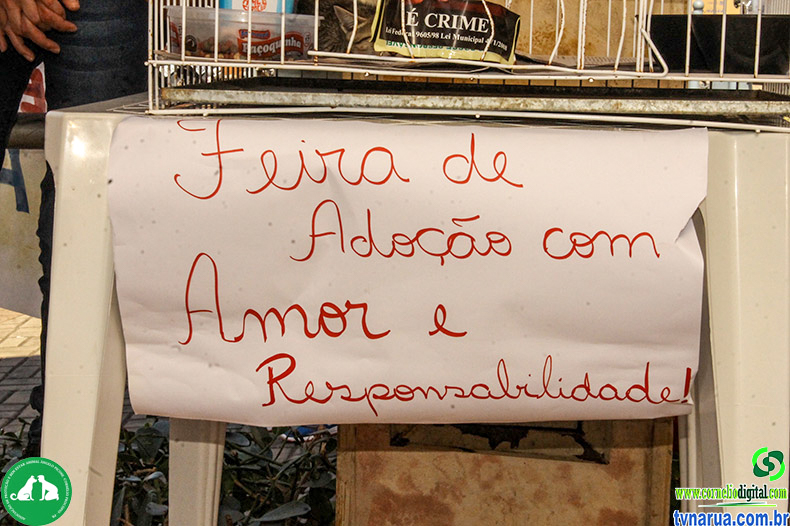 É CRIME
Lei Federal 9605/98 Lei Municipal
Paçoquinha
Feira de
Adoção com
Amor e
Responsabilidade!
www.corneliodigital.com
tvnarua.com.br